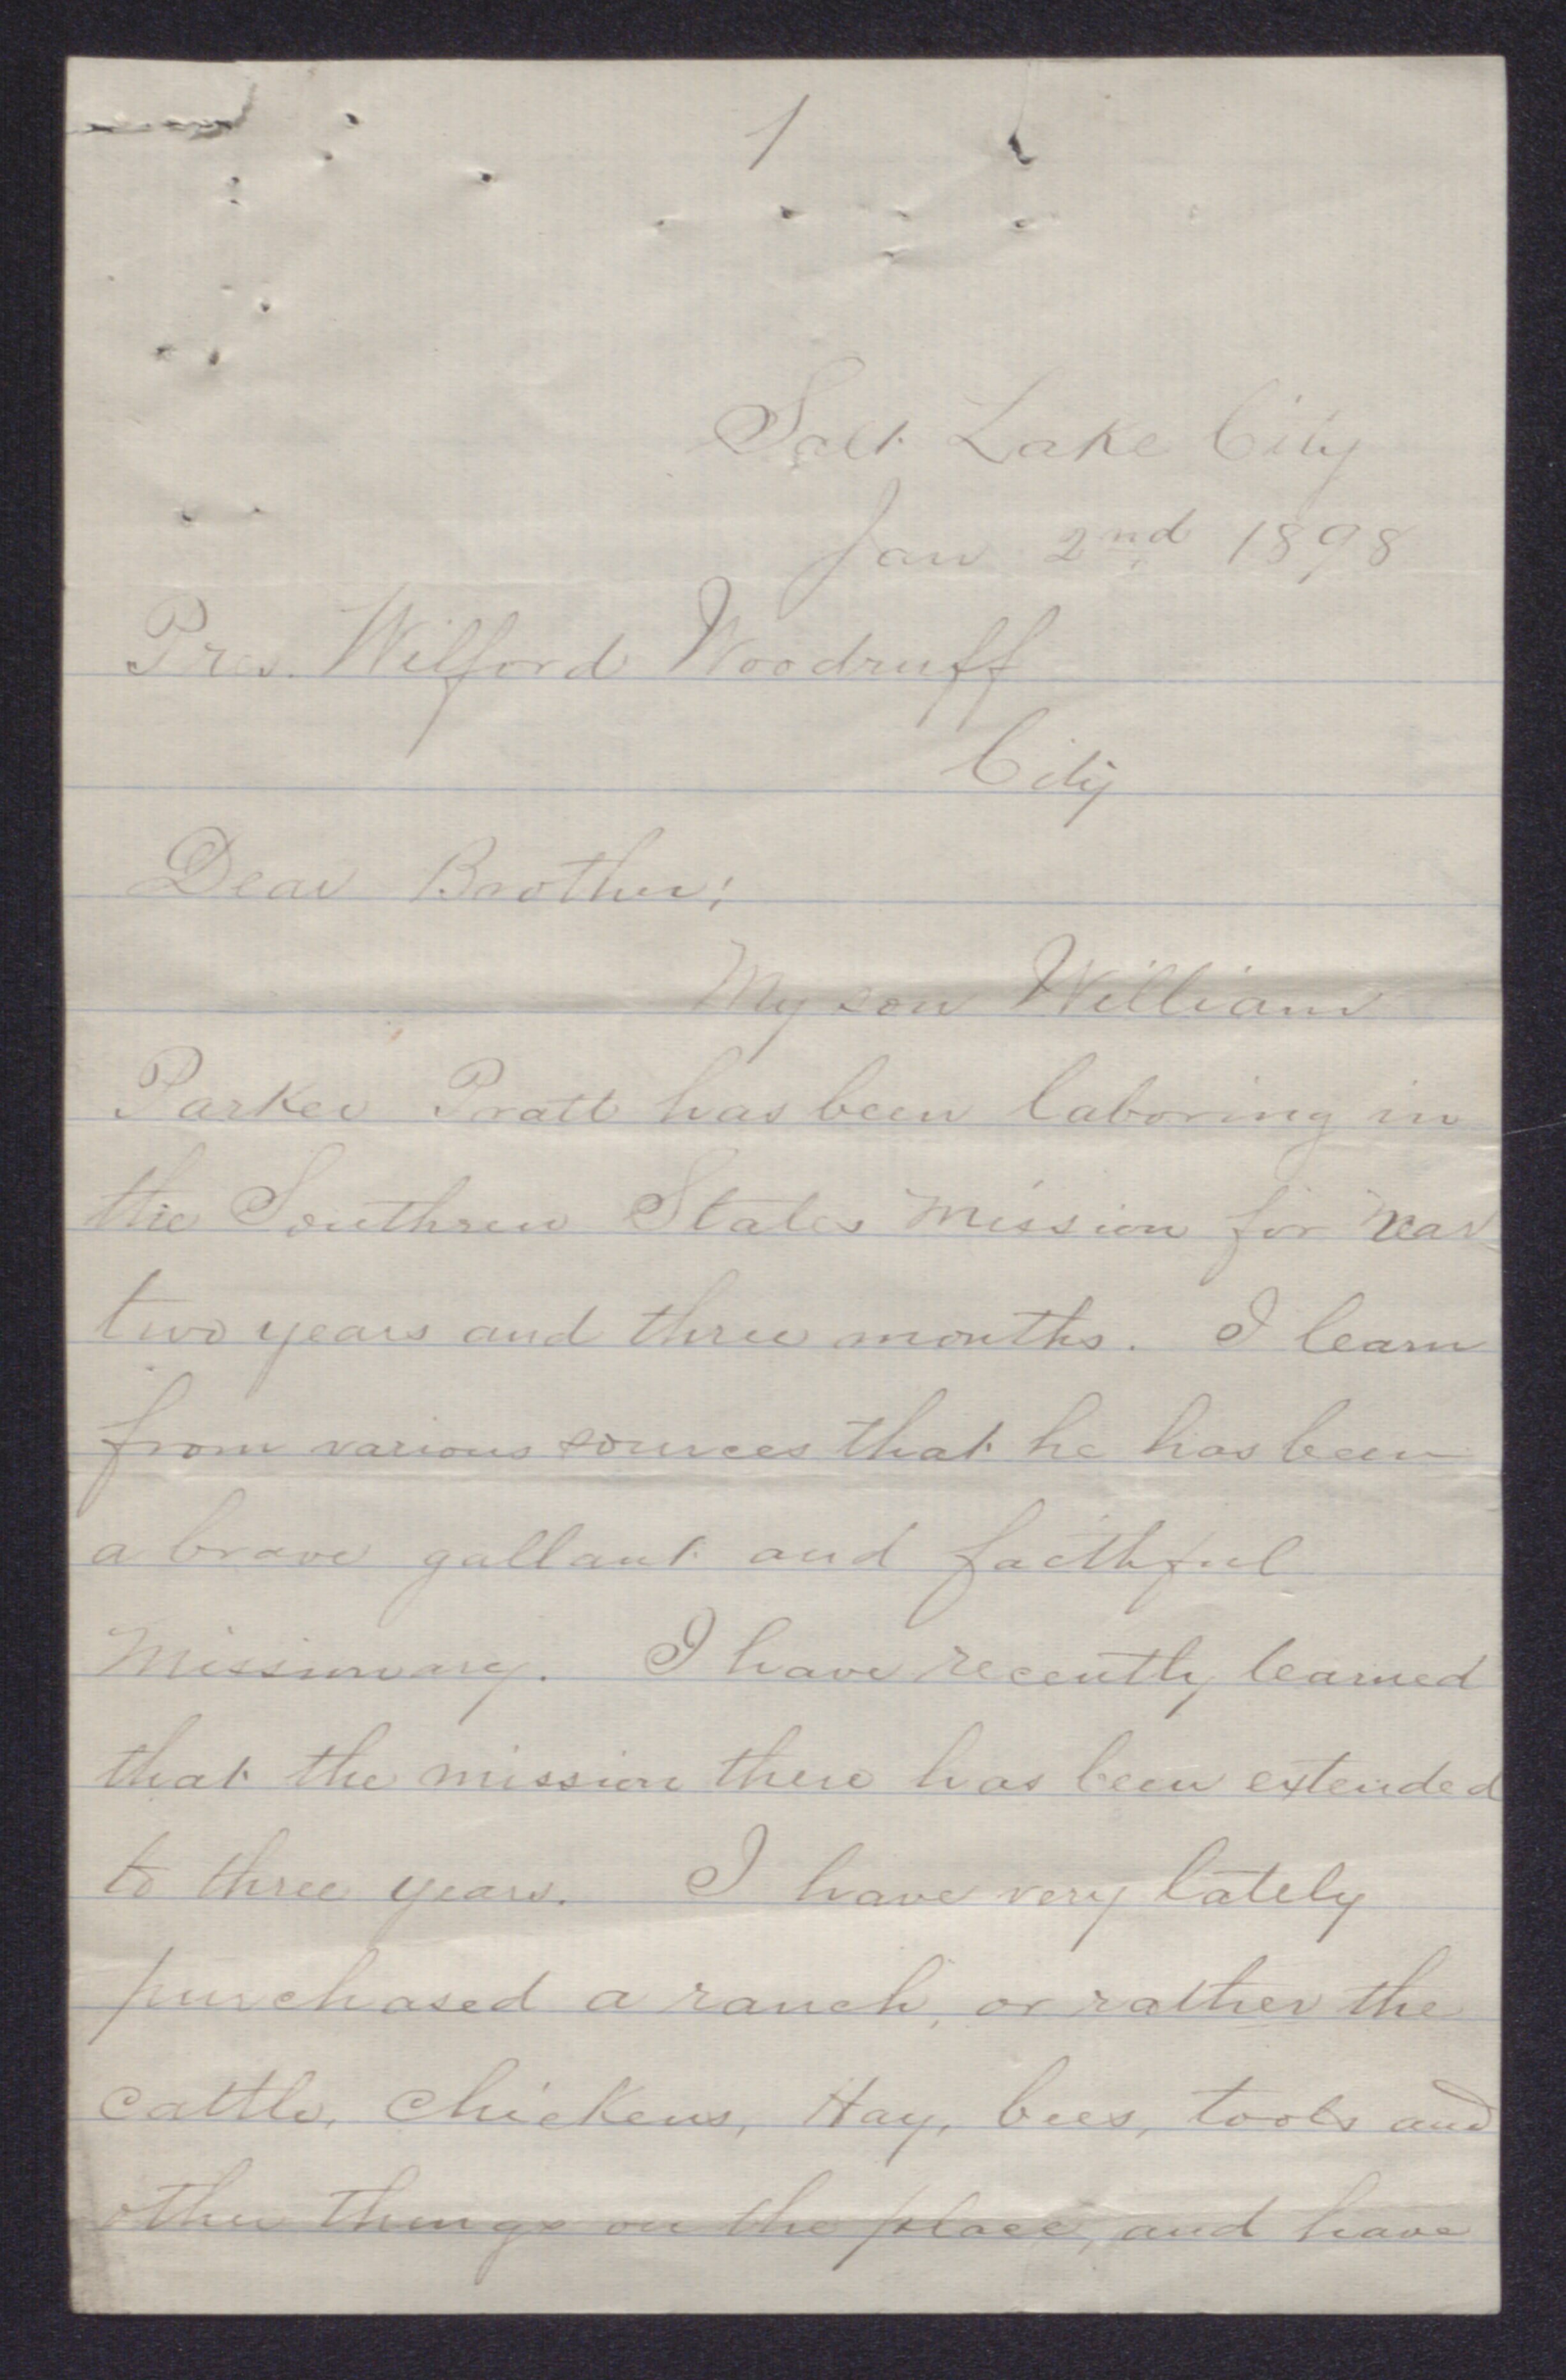 1
Salt Lake City
Jan 2nd 1898
Pres. Wilford Woodruff
City
Dear Brother;
My son William
Parker Pratt has been laboring in
the Southren States Mission for near
two years and three months. I learn
from various sources that he has been
a brave gallant and faithful
Missionary. I have recently learned
that the mission there has been extended
to three years. I have very lately
purchased a ranch, or rather the
cattle, chickens, Hay, bees, tools and
other things on the place, and have